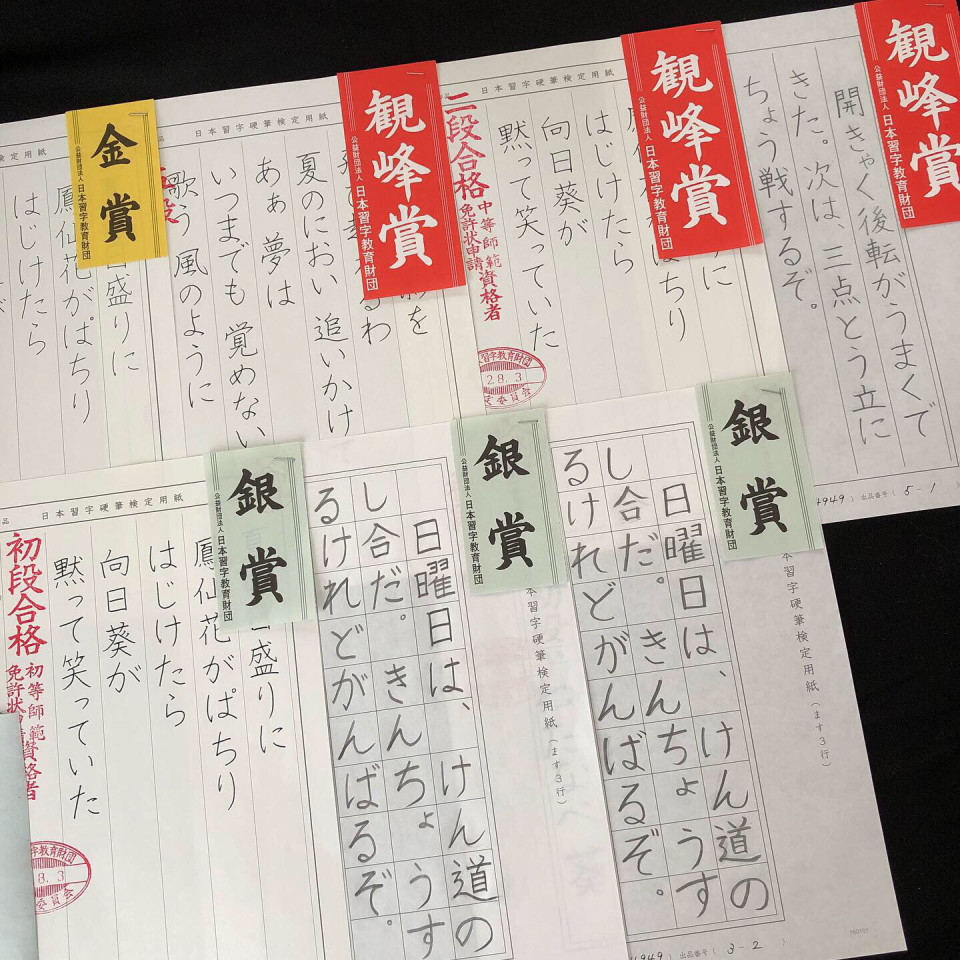 金賞
公益財団法人 日本習字教育財団
日本習字硬筆検定用紙
盛りに
鳳仙花がぱちり
はじけたら
観峰賞
公益財団法人 日本習字教育財団
を
るわ
夏のにおい 追いかけ
あぁ 夢は
いつまでも 覚めない
歌う風のように
観峰賞
公益財団法人 日本習字教育財団
日本習字硬筆検定用紙
に
ぱちり
はじけたら
向日葵が
黙って笑っていた
二段合格
中等師範資格者
免許状申請
習字教育財団
28.3
委員会
観峰賞
公益財団法人 日本習字教育財団
開きゃく後転がうまくで
きた。次は、三点とう立に
ちょう戦するぞ。
4949 ) 出品番号 ( 5-1
銀賞
公益財団法人 日本習字教育財団
品 日本習字硬筆検定用紙
盛りに
鳳仙花がぱちり
はじけたら
向日葵が
黙って笑っていた
初段合格
初等師範資格者
免許状申請
字教育財団
8.3
委員会
銀賞
公益財団法人 日本習字教育財団
本習字硬筆検定用紙(ます3行)
日曜日は、けん道の
し合だ。きんちょうす
るけれどがんばるぞ。
銀賞
公益財団法人 日本習字教育財団
本習字硬筆検定用紙(ます3行)
日曜日は、けん道の
し合だ。きんちょうす
るけれどがんばるぞ。
4949 ) 出品番号 ( 3-2 )